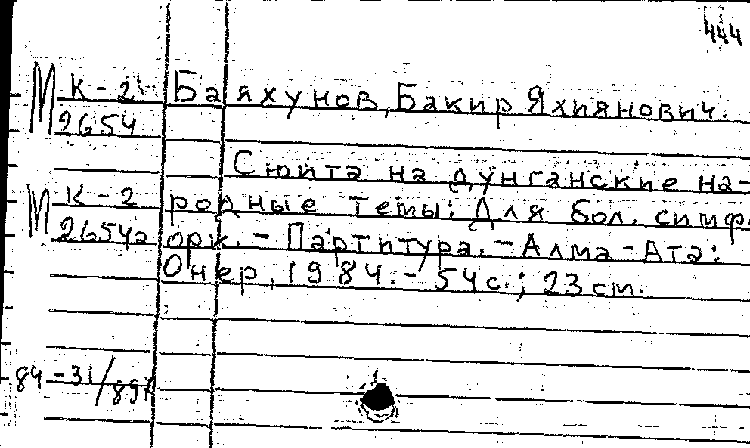 444
М К-2 Баяхунов, Бакир Яхиянович.
2654
Сюита на дунганские на-
М К-2 родные темы: Для бол. симф.
2654а орк. - Партитура. - Алма-Ата:
Онер, 1984. - 54 с.; 23 см.
84-31/